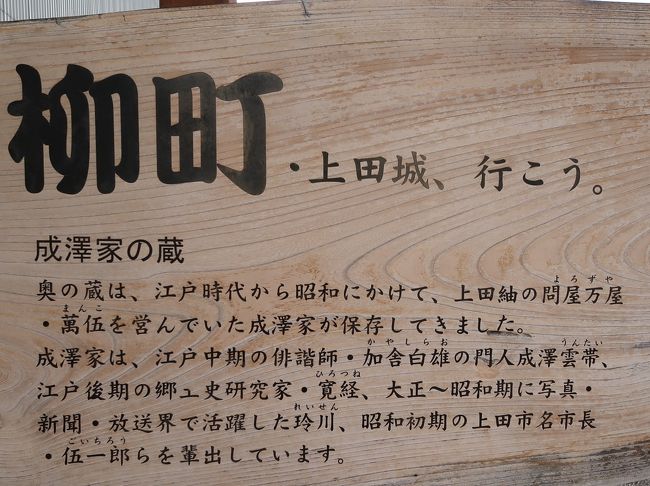 柳町・上田城、行こう。
成澤家の蔵
奥の蔵は、江戸時代から昭和にかけて、上田紬の問屋万屋
よろずや
・萬伍を営んでいた成澤家が保存してきました。
まんご
成澤家は、江戸中期の俳諧師・加舎白雄の門人成澤雲帯、
かやしらお
うんたい
江戸後期の郷土史研究家・寛経、大正〜昭和期に写真・
ひろつね
新聞・放送界で活躍した玲川、昭和初期の上田市名市長
れいせん
・伍一郎らを輩出しています。
ごいちろう